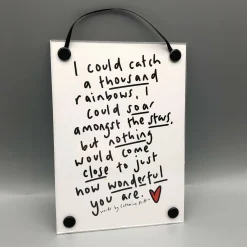 I could catch
a thousand
rainbows, I
could soar
amongst the stars,
but nothing
would come
close to just
how wonderful
you are.
words by